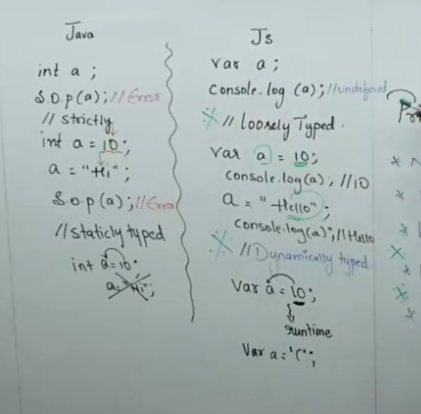 Java
int a ;
S.O.p(a); //Error
// strictly
int a = 10;
a = "Hi";
S.o.p(a); //Error
//staticly typed
int a=10;
a="Hi";
Js
var a ;
Console.log (a); //undefined
// Loosely Typed .
Var a = 10;
Console.log(a); //10
a = "Hello";
Console.log(a); //Hello
//Dynamically typed
Var a = 10;
runtime
Var a = 'C';